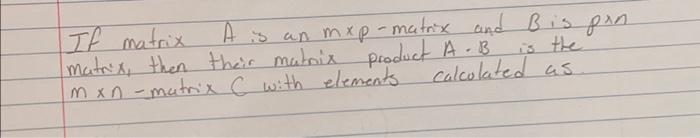 If matrix A is an mxp-matrix and B is pxn
matrix, then their matrix product A·B is the
mxn-matrix C with elements calculated as